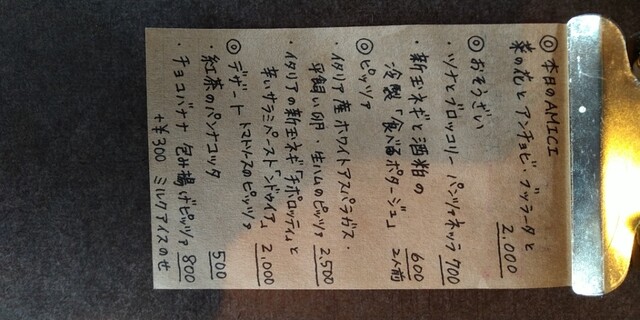 ◎本日のAMICI
菜の花とアンチョビ・ブッラータと
2,000
◎おそうざい
・ツナとブロッコリー パンツァネッラ 700
・新玉ネギと酒粕の
冷製「食べるポタージュ」 2人前 600
◎ピッツァ
・イタリア産ホワイトアスパラガス・
平飼い卵・生ハムのピッツァ 2,500
・イタリアの新玉ネギ「チポロッティ」と
辛いサラミペースト「ンドゥイア」 2,000
トマトソースのピッツァ
◎デザート
・紅茶のパンナコッタ 500
・チョコバナナ 包み揚げピッツァ 800
+¥300 ミルクアイスのせ